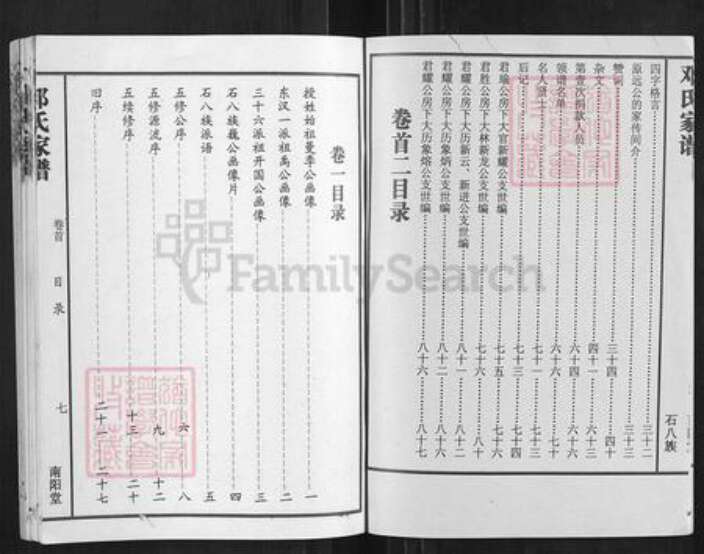 邓氏家谱
石八族
四字格言……三十二
原远公的家传间介……三十三
赞词……三十四……四十
杂文……四十一……六十三
第壹次捐款人员……六十四……六十六
领谱名单……六十六
名人贤士……七十一
后记……七十三……七十四
君瑜公房下大官新耀公支世编……七十五……七十六
君胜公房下大林新龙公支世编……七十六……八十
君耀公房下大历新云、新进公支世编……八十一……八十二
君耀公房下大历象炳公支世编……八十二……八十六
君耀公房下大历象熔公支世编……八十六……八十七
卷首二目录
卷一目录
授姓始祖曼季公画像……一
东汉一派祖禹公画像……二
三十六派祖开国公画像……三
石八族巍公画像片……四
石八族派语……五
五修公序……六……八
五修源流序……九……十二
五续修序……十三……二十
旧序……二十一……二十七
邓氏家谱
卷首
目录
七
南阳堂
FamilySearch